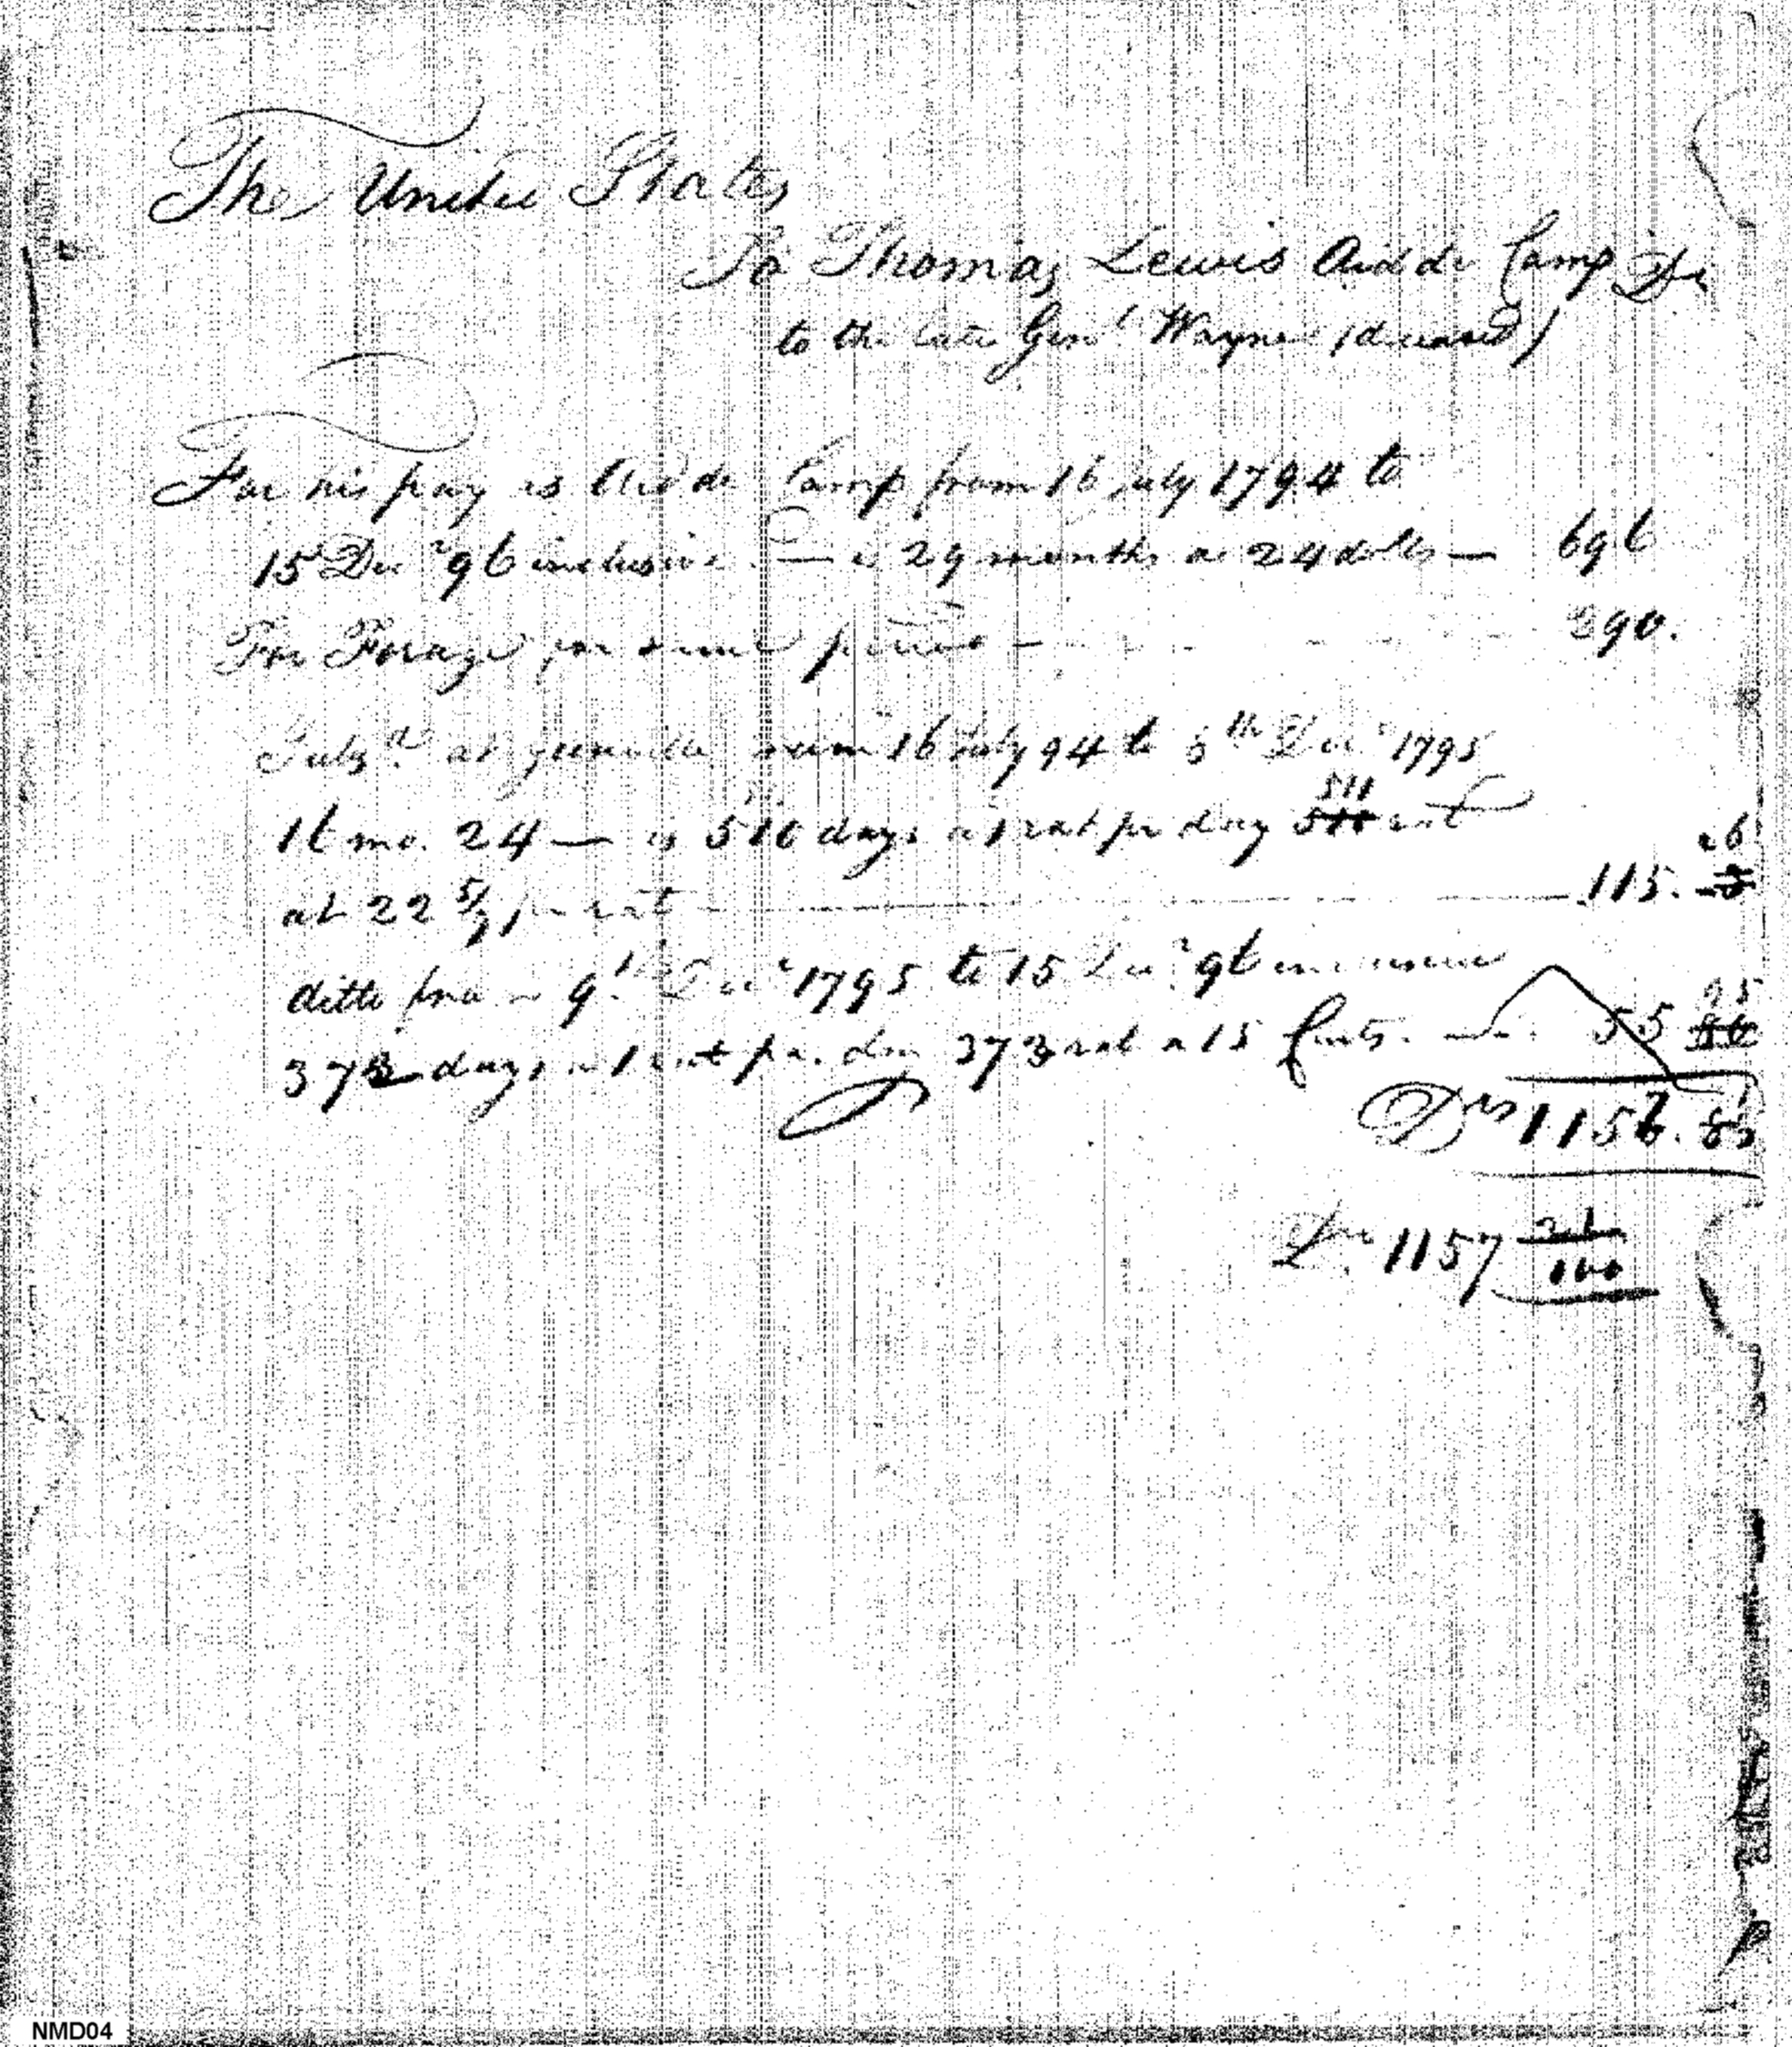 The United States
To Thomas Lewis Aid de Camp Dr
to the late Genl. Wayne (deceased)
For his pay as Aid de Camp from 16 July 1794 to
15 Decr 96 inclusive — is 29 months a 24 dolls — 696
For Forage for same period — 290.
at from 16 July 94 to 8th Decr 1795
16 mo. 24 — is 510 days a 1 rat pr day 511 rat
at 22 5/ pr rat 115. 26
ditto from 9th Decr 1795 to 15 Decr 96 inclusive
373 days a 1 rat pr. day 373 rat a 15 Cents. 55 95
Drs 1157.
Drs 1157 21/100
NMD04